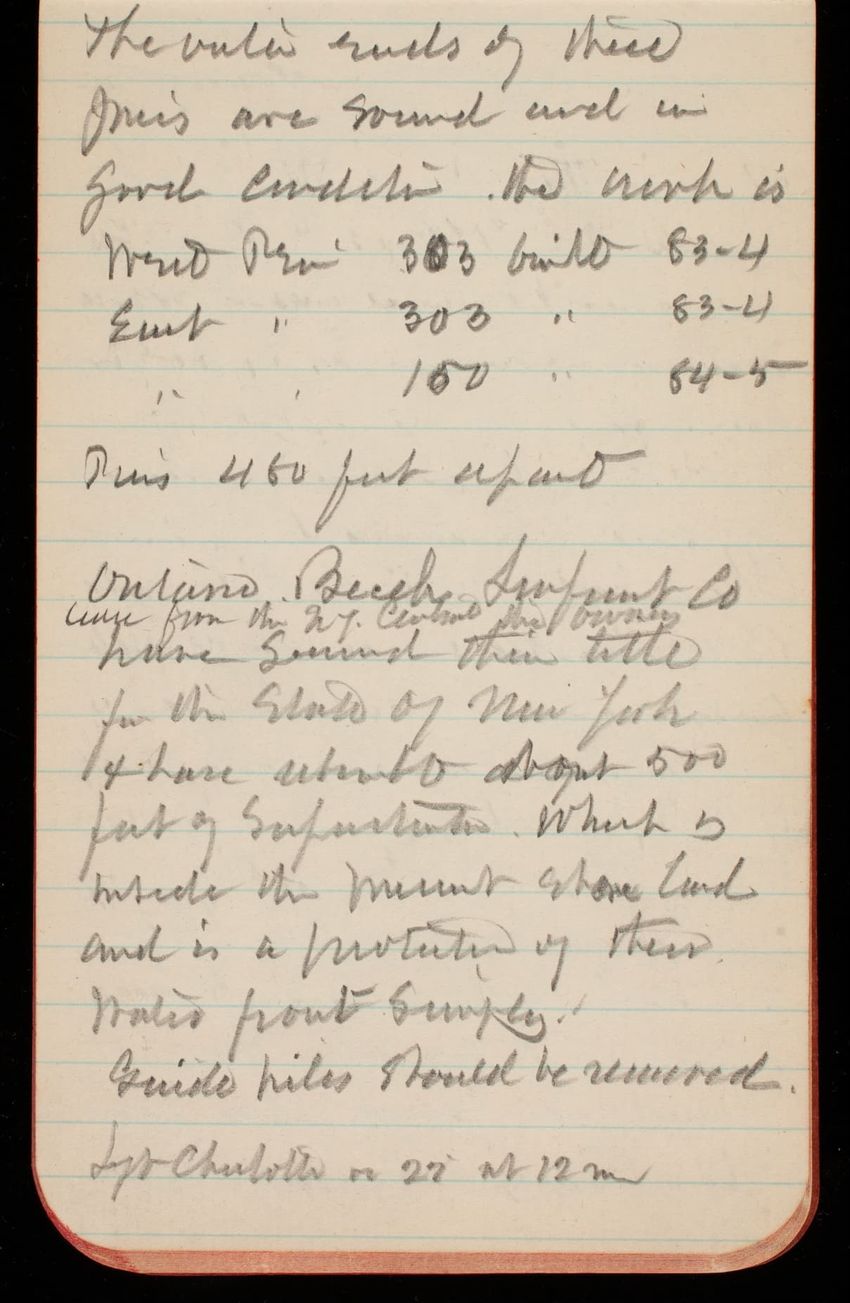 The outer ends of these
Piers are sound and in
good condition. the work is
West Pier 303 built 83-4
East " 303 " 83-4
" " 150 " 84-5
Piers 450 feet apart
Ontario Beach Improvmt Co
lease from the N.Y. Central the owners
have secured their title
for the State of New York
& have rebuilt about 500
feet of Superstructure. Which is
inside the present shore land
and is a protection of their
Water front simply.
Guide piles should be removed.
Left Charlotte on 22 at 12 m